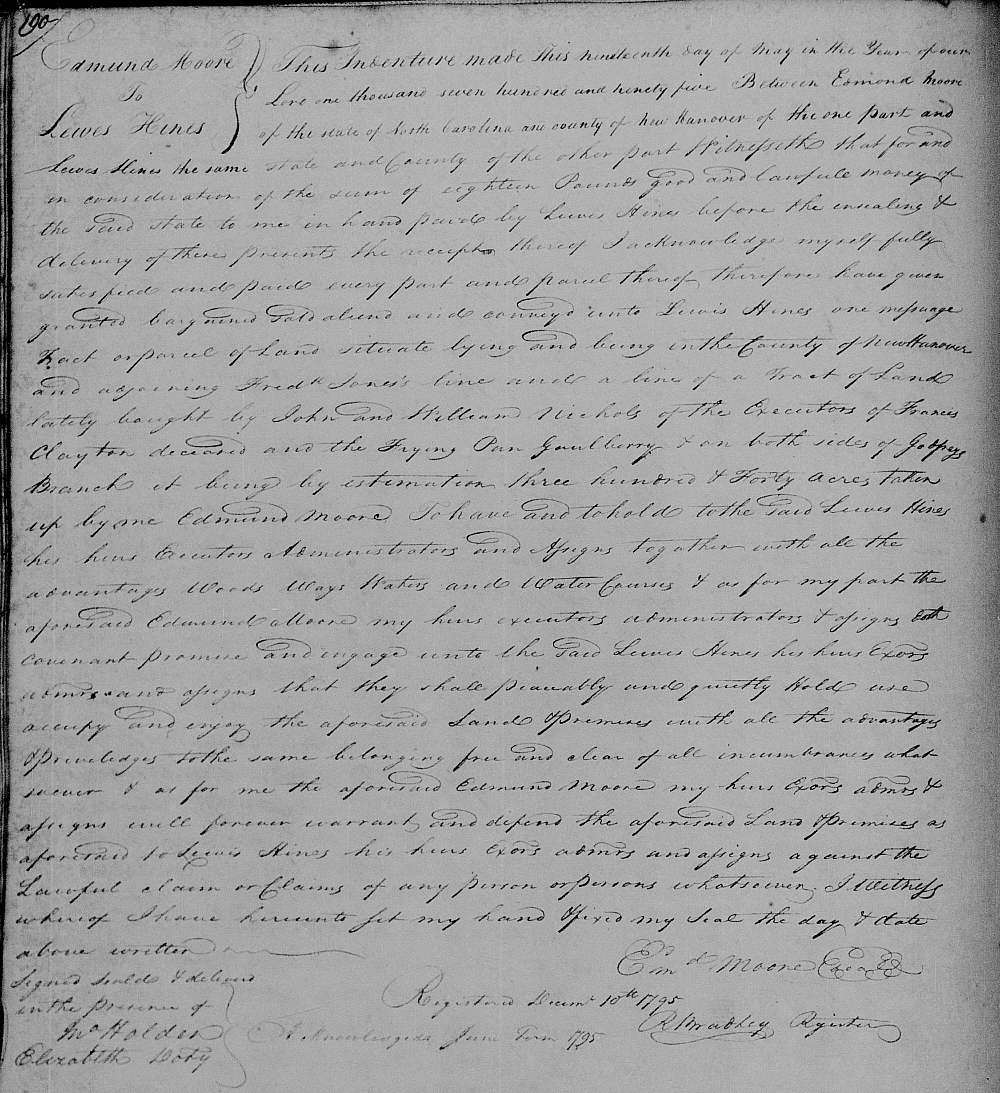 190
Edmund Moore
To
Lewes Hines
This Indenture made this nineteenth day of May in the Year of our
Lord one thousand seven hundred and ninety five Between Edmond Moore
of the state of North Carolina and county of New Hanover of the one part and
Lewes Hines the same state and County of the other part Witnesseth that for and
in consideration of the sum of eighteen Pounds good and lawfull money of
the Said state to me in hand paid by Lewes Hines before the ensealing &
delivery of these presents the receipt thereof I acknowledge myself fully
satesfied and paid every part and parcel thereof, therefore have given
granted bargained Sold aliend and convey'd unto Lewis Hines one messuage
Tract or parcel of Land situate lying and being in the County of New Hanover
and adjoining Fredk Jones's line and a line of a Tract of Land
lately bought by John and William Nichols of the Executors of Frances
Clayton deceased and the Frying Pan Gaulberry & on both sides of Godfreys
Branch it being by estimation three hundred & Forty acres taken
up by me Edmund Moore To have and to hold to the Said Lewis Hines
his heirs Executors Administrators and Assigns together with all the
advantages Woods Ways Waters and Water Courses & as for my part the
aforesaid Edmund Moore my heirs executors administrators & assigns doth
covenant promise and engage unto the Said Lewis Hines his heirs Exors
admrs and assigns that they shall peaceably and quietly Hold use
occupy and enjoy the aforesaid Land & premises with all the advantages
& priveledges to the same belonging free and clear of all incumbrances what
soever & as for me the aforesaid Edmund Moore my heirs Exors admrs &
assigns will forever warrant and defend the aforesaid Land & premises as
aforesaid to Lewis Hines his heirs Exors admrs and assigns against the
Lawful claim or Claims of any person or persons whatsoever. I Witness
whereof I have hereunto set my hand & fixed my Seal the day & date
above written
Signed seald & deliverd
in the presence of
Holden
Elizabeth Doty
Edmd Moore
Registered Decemr 10th 1795
R Bradley Register
Acknowledged June Term 1795